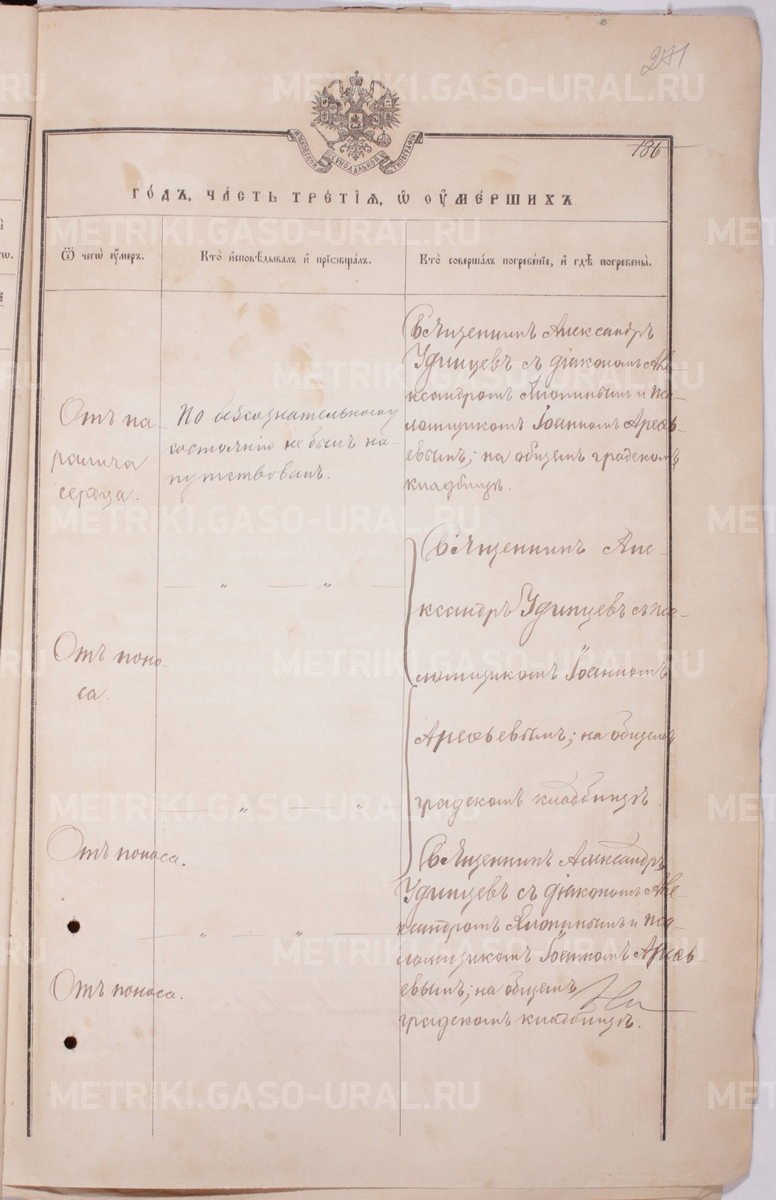 271
136
МОСКОВСКОЙ СѴНОДАЛЬНОЙ ТИПОГРАФІИ
ГОДЪ, ЧАСТЬ ТРЕТІЯ, Ѡ ОУМЕРШИХЪ
Ѿ чегѡ оумеръ.
Кто исповѣдывалъ и пріобщалъ.
Кто совершалъ погребеніе, и гдѣ погребены.
Отъ па-
ралича
сердца.
По безсознательному
состоянію не былъ на-
путствованъ.
Священникъ Александръ
Удинцевъ съ діакономъ Але-
ксандромъ и пса-
ломщикомъ Іоанномъ Арефь-
евымъ; на общемъ градскомъ
кладбищѣ.
Отъ поно-
са.
— „ — „ —
Священникъ Але-
ксандръ Удинцевъ съ пса-
ломщикомъ Іоанномъ
Арефьевымъ; на общемъ
градскомъ кладбищѣ.
Отъ поноса.
— „ — „
Священникъ Александръ
Удинцевъ съ діакономъ Але-
ксандромъ и пса-
ломщикомъ Іоанномъ Арефь-
евымъ; на общемъ
градскомъ кладбищѣ.
Отъ поноса.
— „ — „ —
METRIKI.GASO-URAL.RU